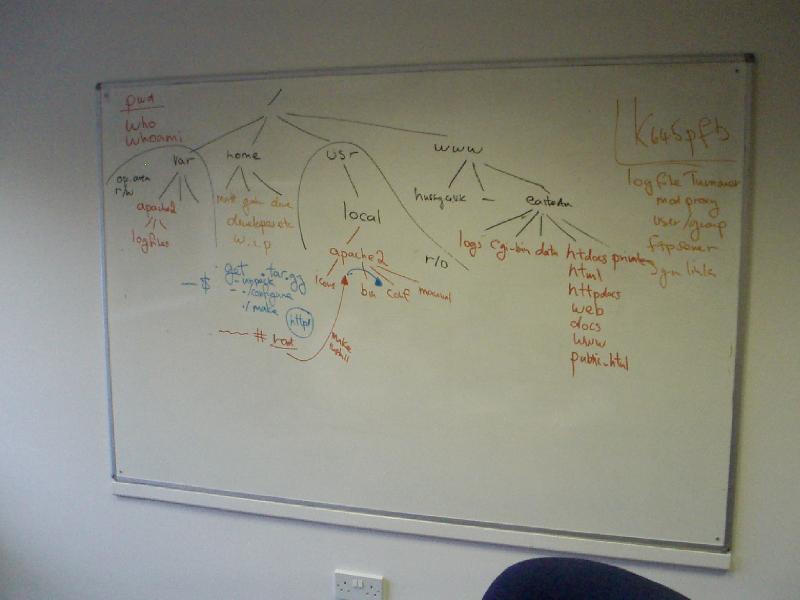 pwd
who
whoami
/
var
home
usr
www
K645pfb
op. area
r/w
apache2
logfiles
w.i.p
local
apache2
icons
bin
conf
manual
r/o
logs cgi-bin data htdocs private
html
httpdocs
web
docs
www
public_html
log file Turnover
mod proxy
user/group
ftp server
sym links
$
get .tar.gz
- unpack
- ./configure
./make
httpd
# root
make install